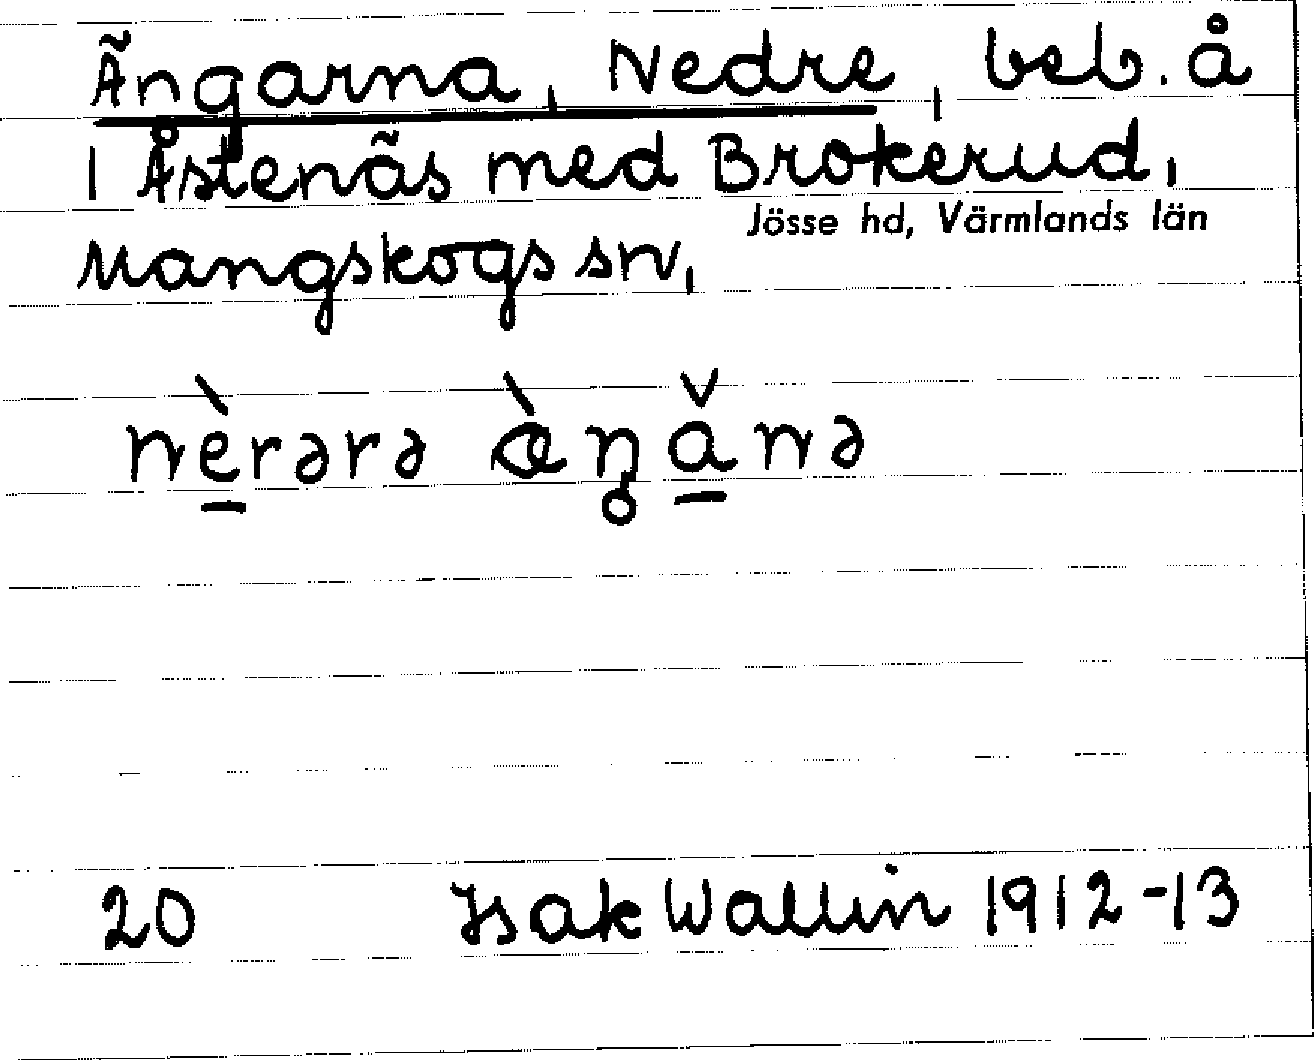 Ängarna, Nedre, beb. å
1 Åstenäs med Brokerud,
Jösse hd, Värmlands län
Mangskogs sn,
nèrərə æ̀ŋănə
20 Isak Wallin 1912-13